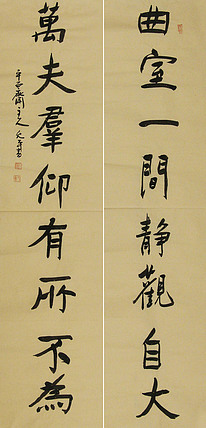 曲室一間靜觀自大
萬夫羣仰有所不為